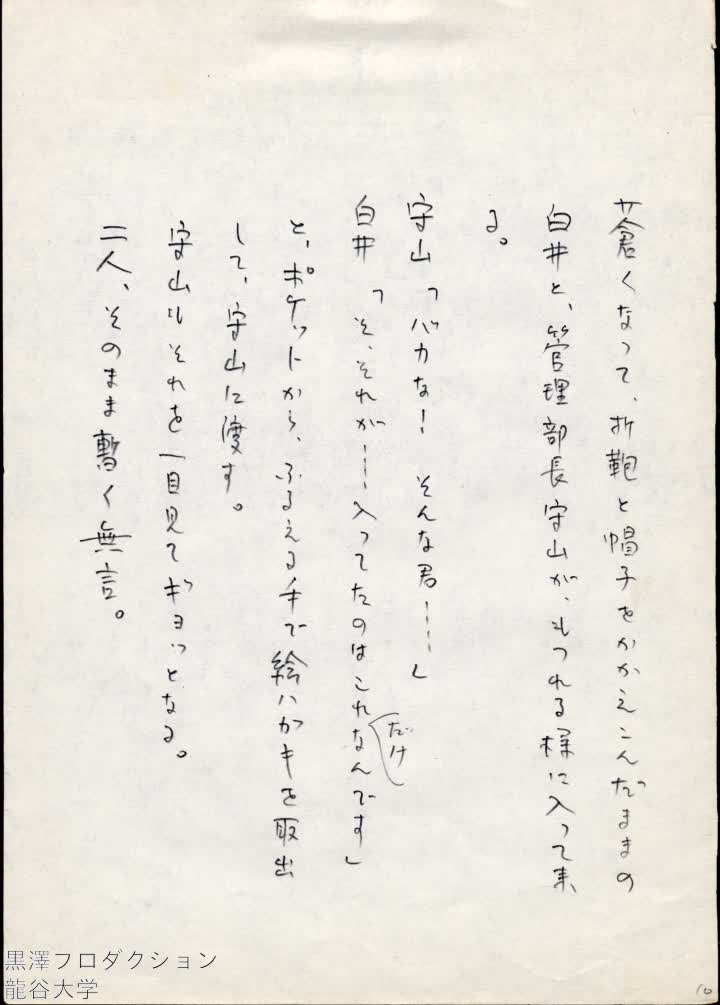 蒼くなって、折鞄と帽子をかかえこんだままの
白井と、管理部長守山が、もつれる様に入って来
る。
守山「バカな！　そんな君……」
白井「そ、それが……入ってたのはこれだけなんです」
と、ポケットから、ふるえる手で絵ハガキを取出
して、守山に渡す。
守山もそれを一目見てギョッとなる。
二人、そのまま暫く無言。
黒澤プロダクション
龍谷大学
10